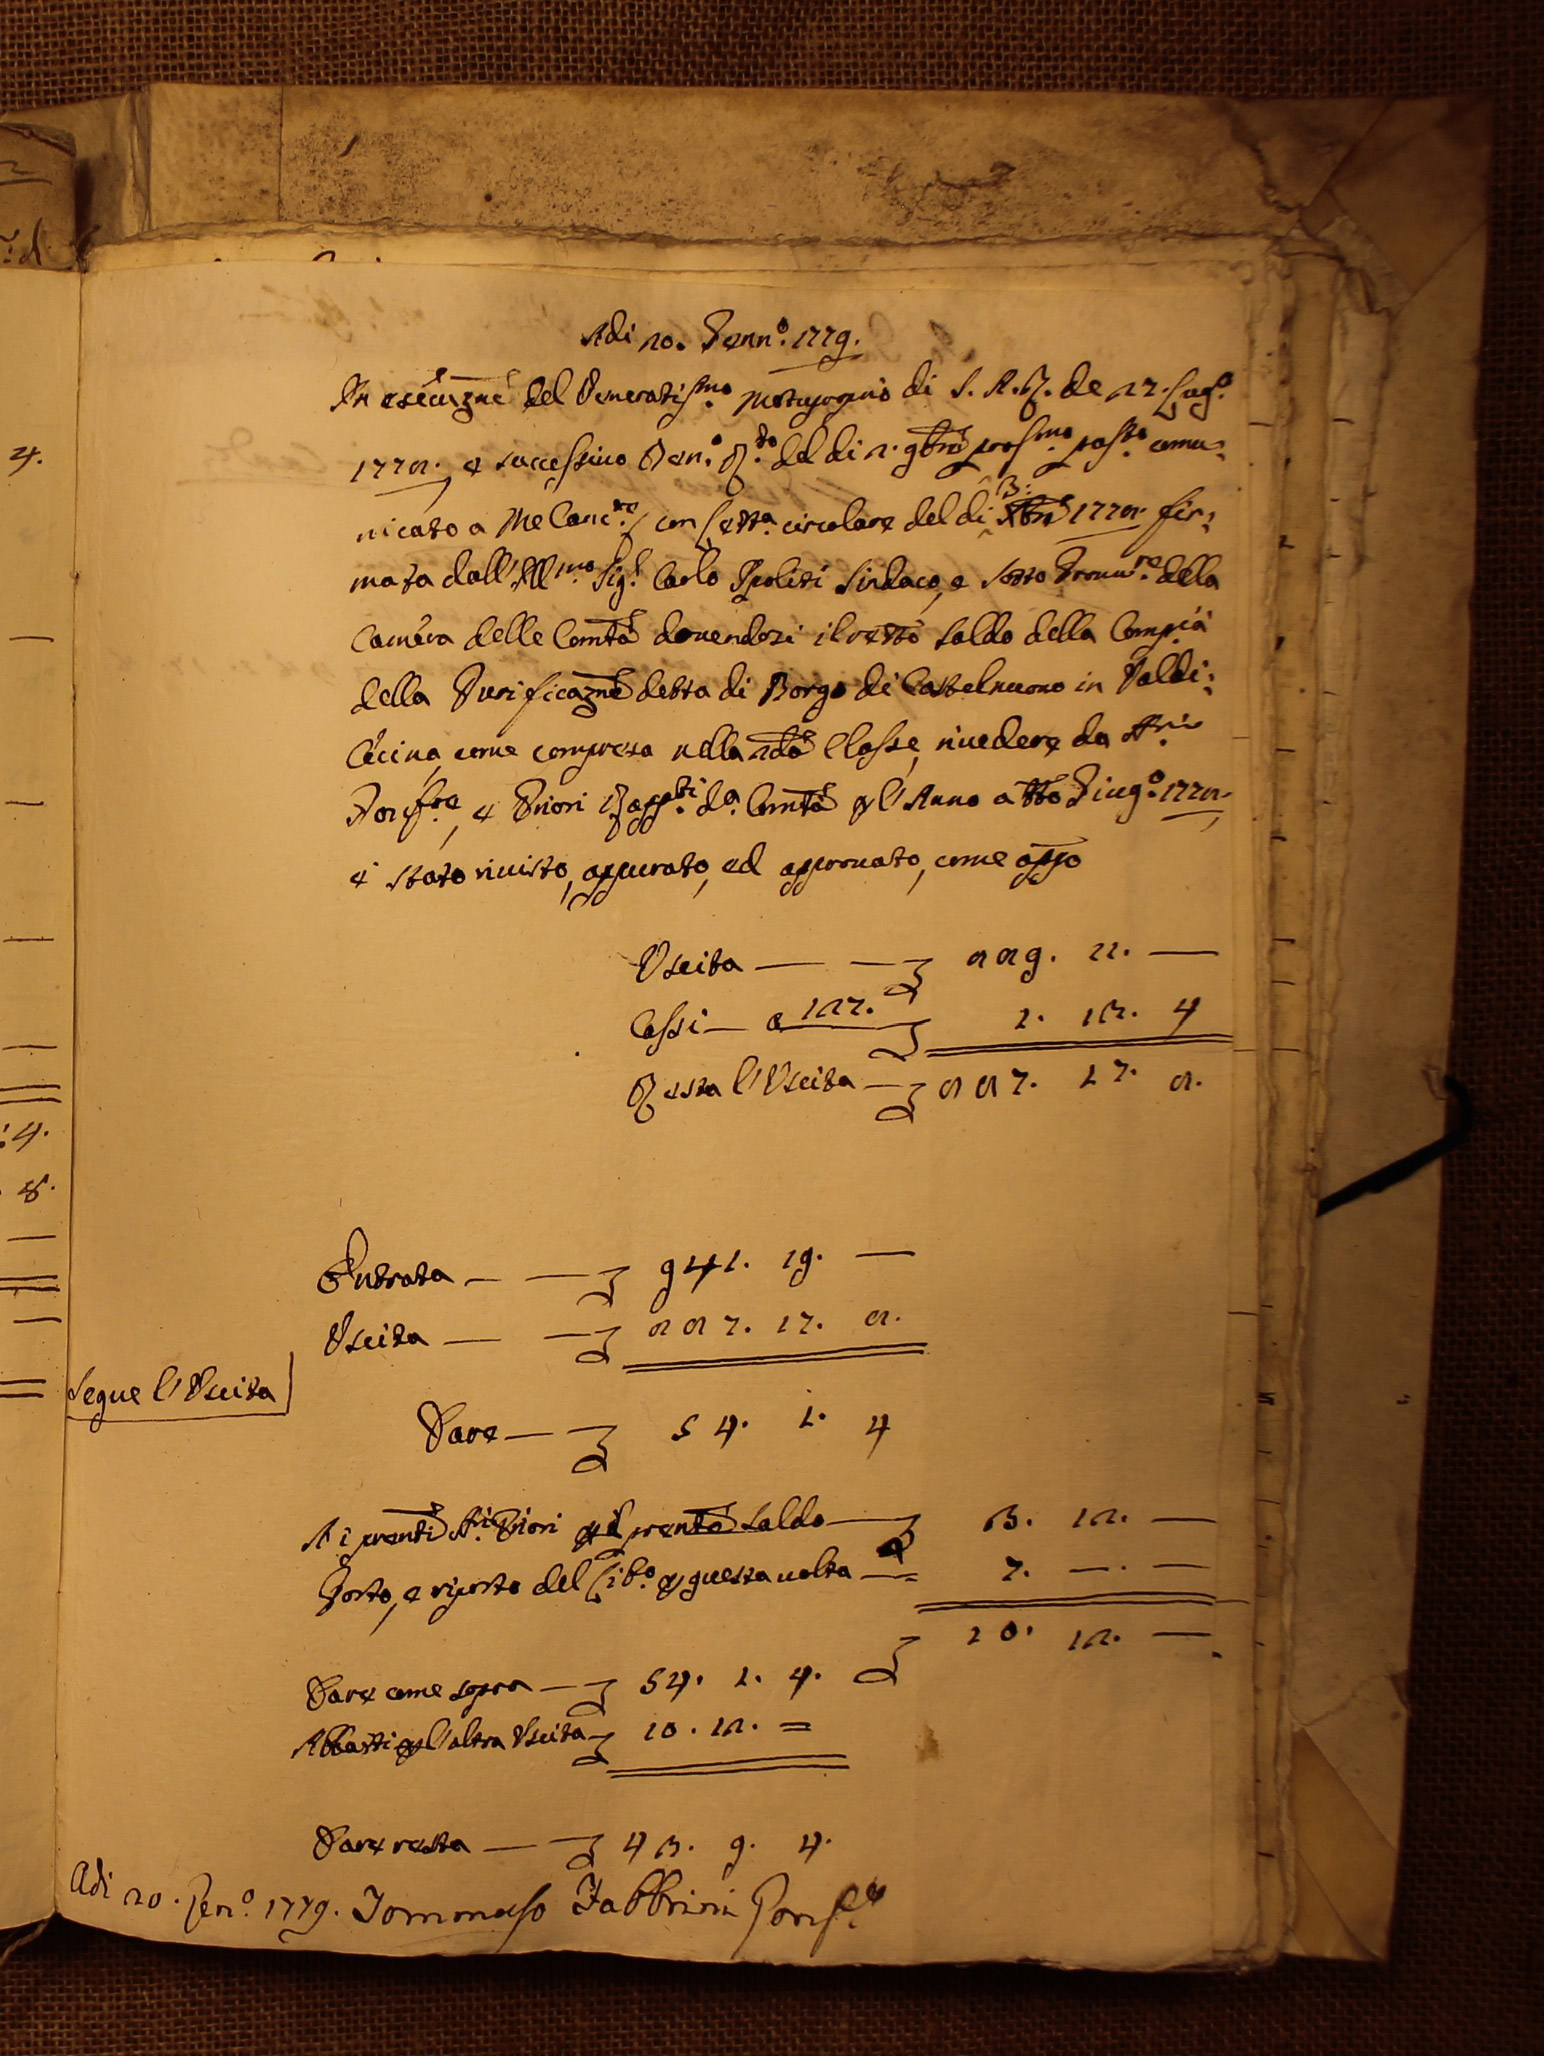 Adi 20. Genn.º 1779.
In esecuzne del Veneratis.mo Motuproprio di S. A. R. de 27. Lug.º
1778. e successivo Ben.º R.do del di 2. 9bre pros.mo pass.to comu=
nicato a Me Canc.re con Lett.a circolare del di 3: Xbre 1778. fir=
mata dall' Ill.mo Sig.r Carlo Ipoliti Sindaco, e Sotto Provv.re della
Camera delle Comtà dovendosi il retto Saldo della Compia
della Purificazne detta di Borgo di Castelnuovo in Valdi=
Cecina, come compresa nella 2da Classe, rivedere da SS.ri
Gonf.re, e Priori Rapp.ti d.a Comtà pl' Anno a tto Giug.º 1778.
è stato rivisto, appurato, ed approvato, come appo
Uscita — — 889. 11. —
Cassi — a 127. 1. 13. 4
Resta l'Uscita — 887. 17. 8.
Entrata — — 941. 19. —
Uscita — — 887. 17. 8.
Segue l'Uscita
Dare — 54. 1. 4
Ai prenti SS.ri Priori pil prente Saldo — 3. 12. —
Porto, e riporto del Lib.º p questa volta — = 7. —. —
10. 12. —
Dare come sopra — 54. 1. 4.
Abbatti p l'altra Uscita 10. 12. =
Dare resta — 43. 9. 4.
Adi 20. Gen.º 1779. Tommaso Fabbrini Gonf.re